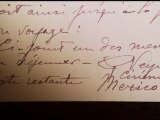 ait ainsi jusqu'à la
voyage !
Ci-joint un des menus
Déjeuner -
Poste restante
Mexico